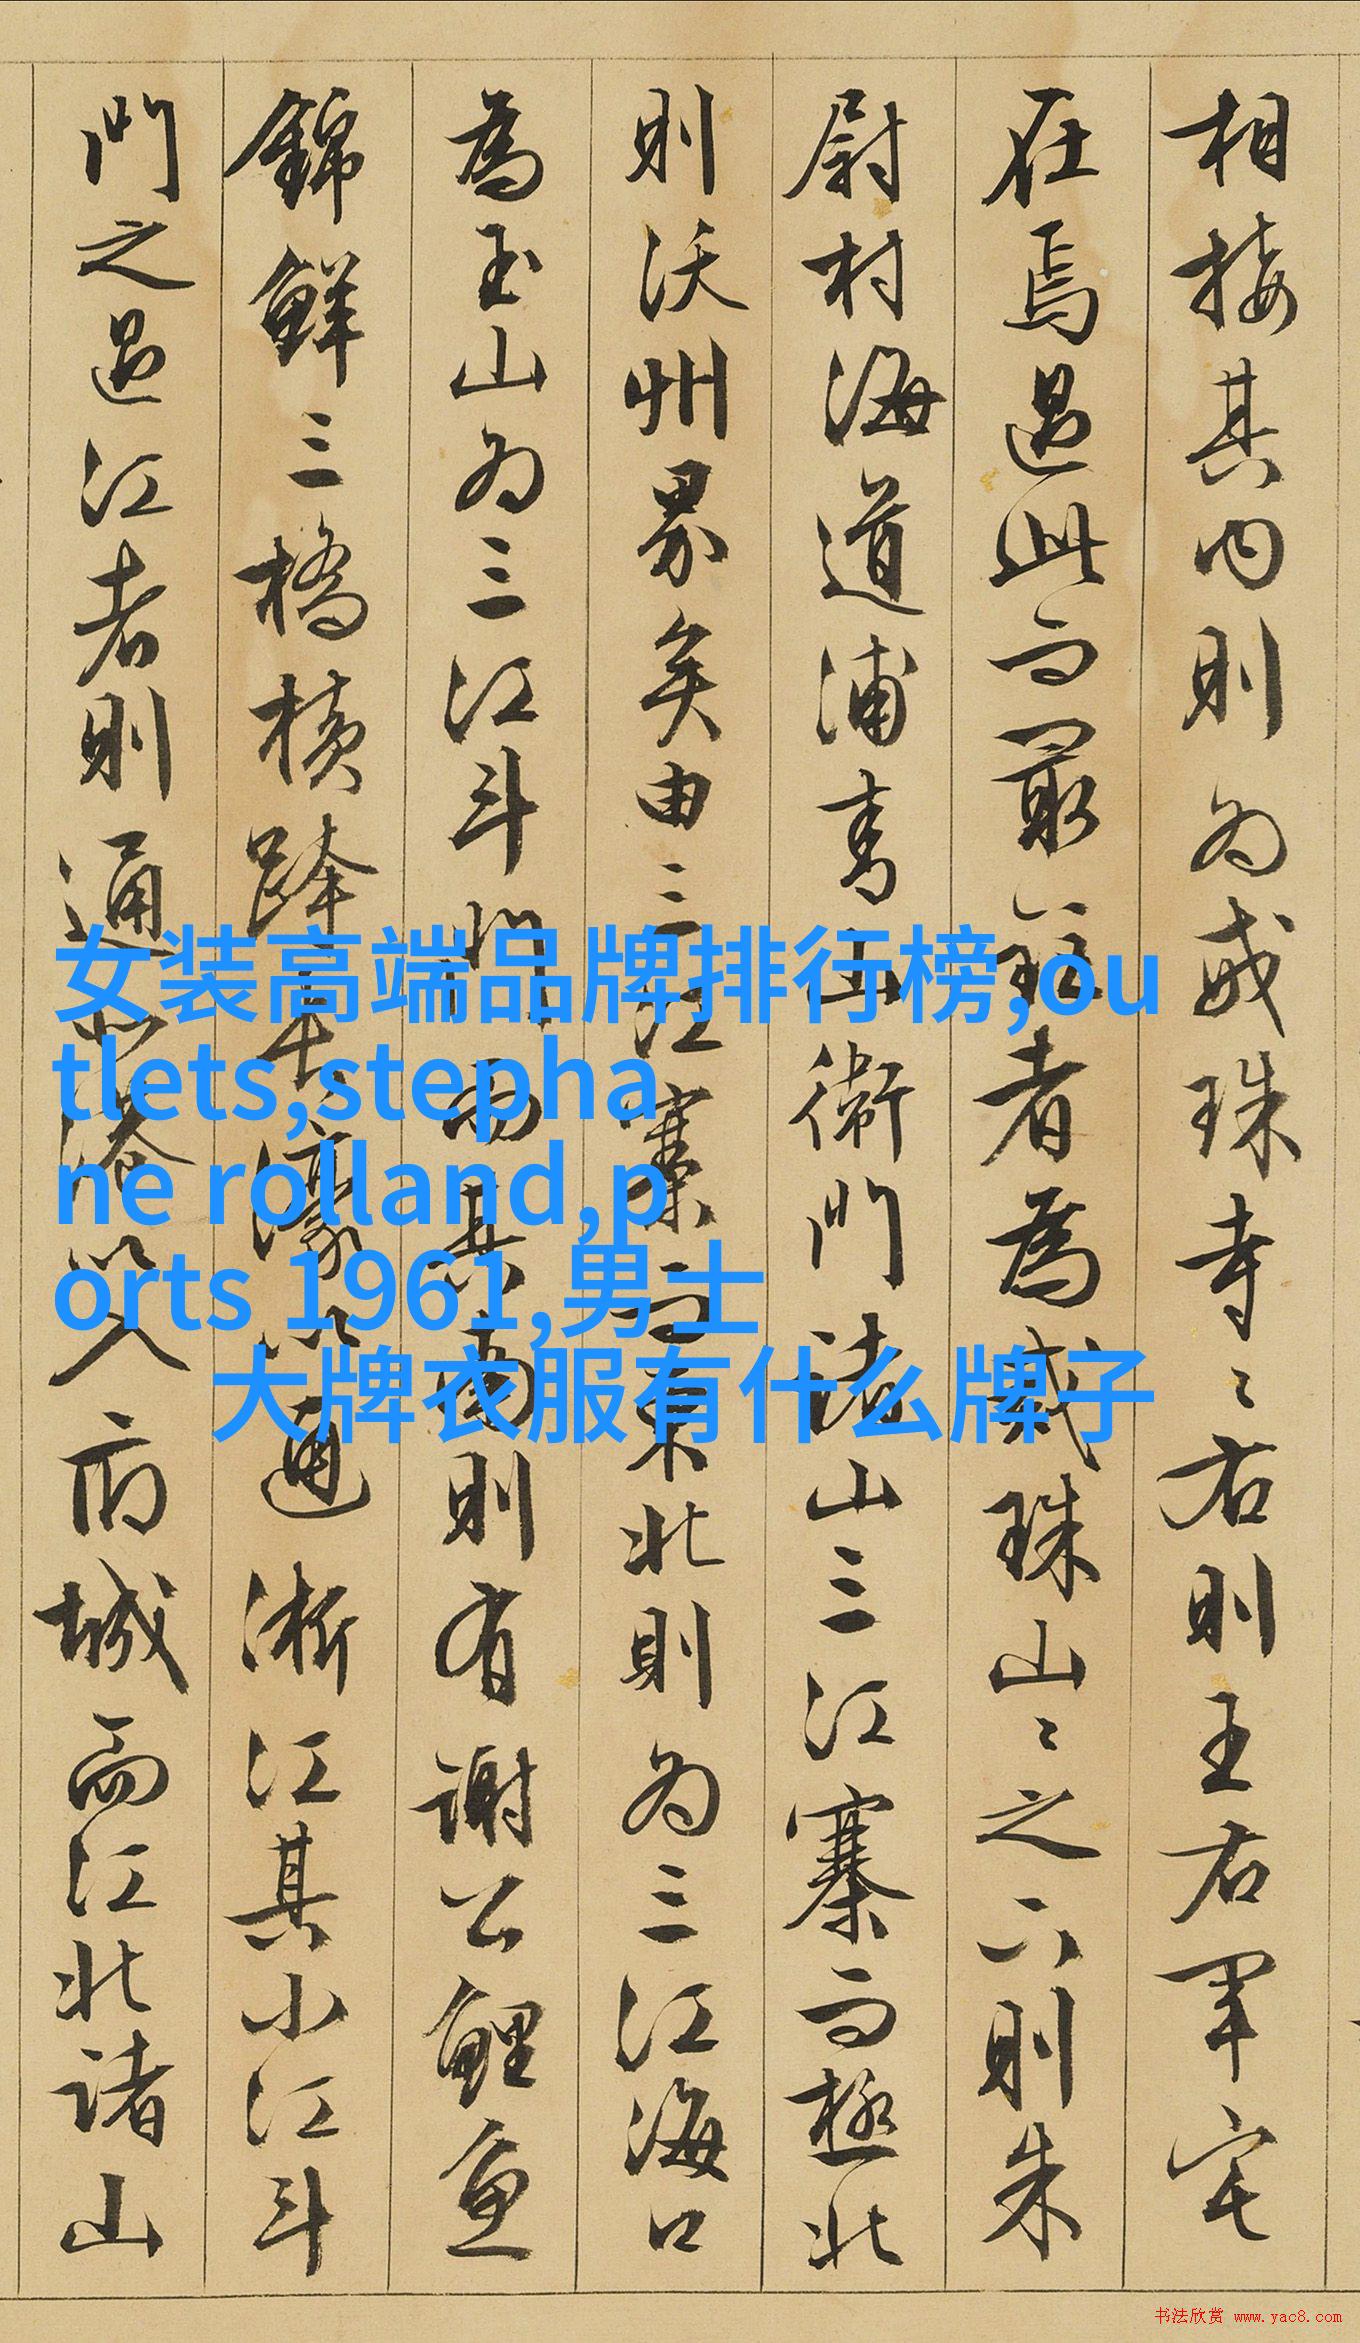 相接其内則为戒珠寺〻右則王右軍宅
在焉過此而最者為戒珠山〻之下則朱
尉村海道浦青山衛門諸山三江寨而極北
則沃州界矣由三江寨而東北則为三江海口
為玉山为三江斗門而其南則有謝公鯉魚
錦鮮三橋横跨濠以通浙江其小江斗
門之過江者則通港以入府城而江北諸山
女装高端品牌排行榜,ou
tlets,stepha
ne rolland,p
orts 1961,男士
大牌衣服有什么牌子
书法欣赏 www.yac8.com